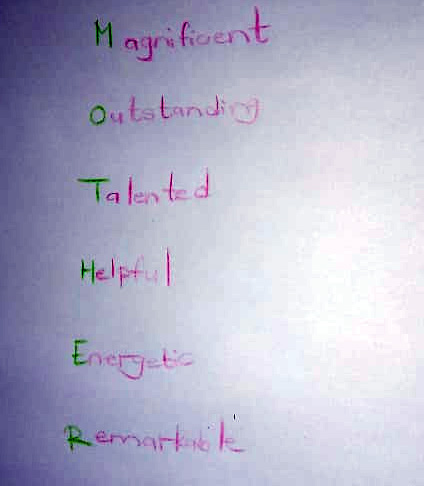 Magnificent
Outstanding
Talented
Helpful
Energetic
Remarkable